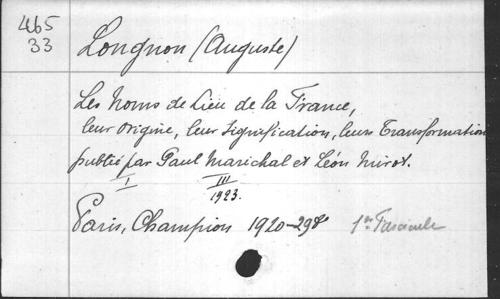 465
33
Longnon (Auguste)
Les Noms de Lieu de la France,
leur origine, leur signification, leurs Transformations
publié par Paul Marichal et Léon Mirot.
I III
1923.
Paris, Champion 1920-29 1er Fascicule